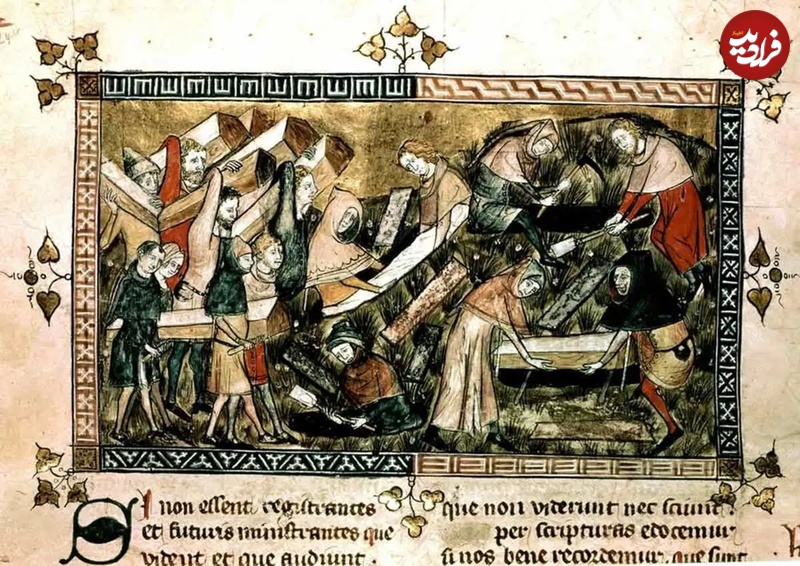 فرادید
SI non essent registrantes
et futuris ministrantes que
vident et que audiunt .
que non viderunt nec sciunt .
per scripturas edocemur
si nos bene recordemur . que sunt